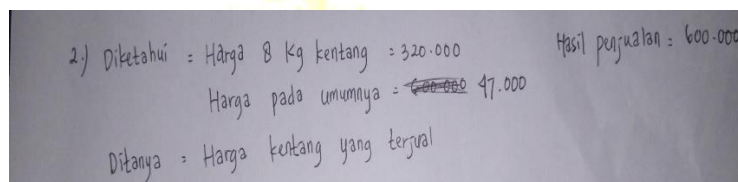 2.) Diketahui : Harga 8 Kg kentang : 320.000 Hasil penjualan : 600.000
Harga pada umumnya : 600.000 47.000
Ditanya : Harga kentang yang terjual